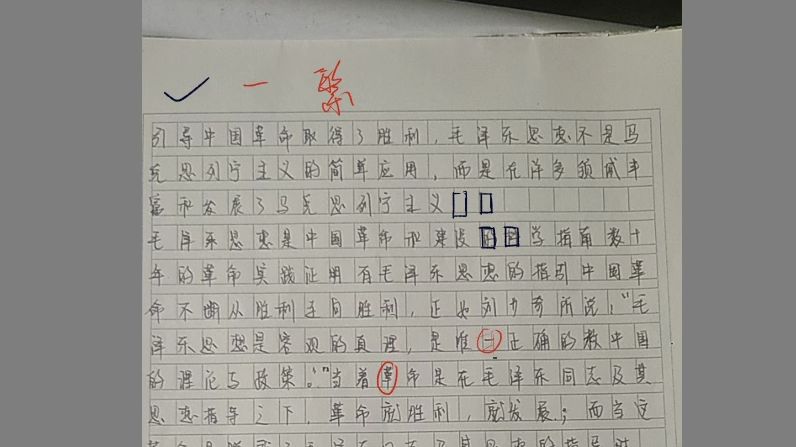 一 繄
引导中国革命取得了胜利，毛泽东思想不是马
克思列宁主义的简单应用，而是在许多领域丰
富和发展了马克思列宁主义
毛泽东思想是中国革命和建设的科学指南数十
年的革命实践证明有毛泽东思想的指引中国革
命不断从胜利走向胜利，正如刘少奇所说："毛
泽东思想是客观的真理，是唯一正确的救中国
的理论与政策。"当着革命是在毛泽东同志及其
思想指导之下，革命就胜利，就发展；而当